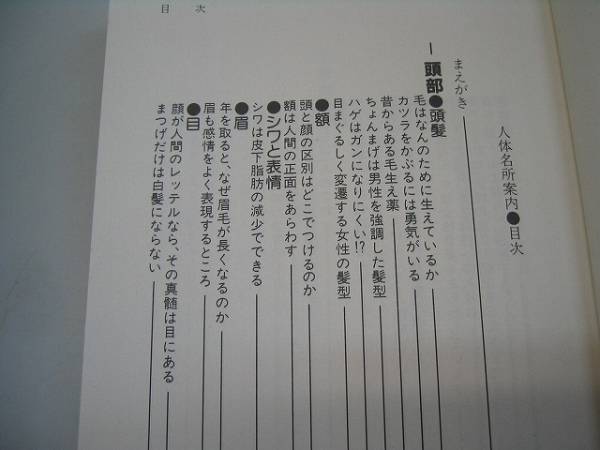 目次
人体名所案内●目次
まえがき
一 頭部●頭髪
毛はなんのために生えているか
カツラをかぶるには勇気がいる
昔からある毛生え薬
ちょんまげは男性を強調した髪型
ハゲはガンになりにくい!?
目まぐるしく変遷する女性の髪型
●額
頭と顔の区別はどこでつけるのか
額は人間の正面をあらわす
●シワと表情
シワは皮下脂肪の減少でできる
●眉
年を取ると、なぜ眉毛が長くなるのか
眉も感情をよく表現するところ
●目
顔が人間のレッテルなら、その真髄は目にある
まつげだけは白髪にならない